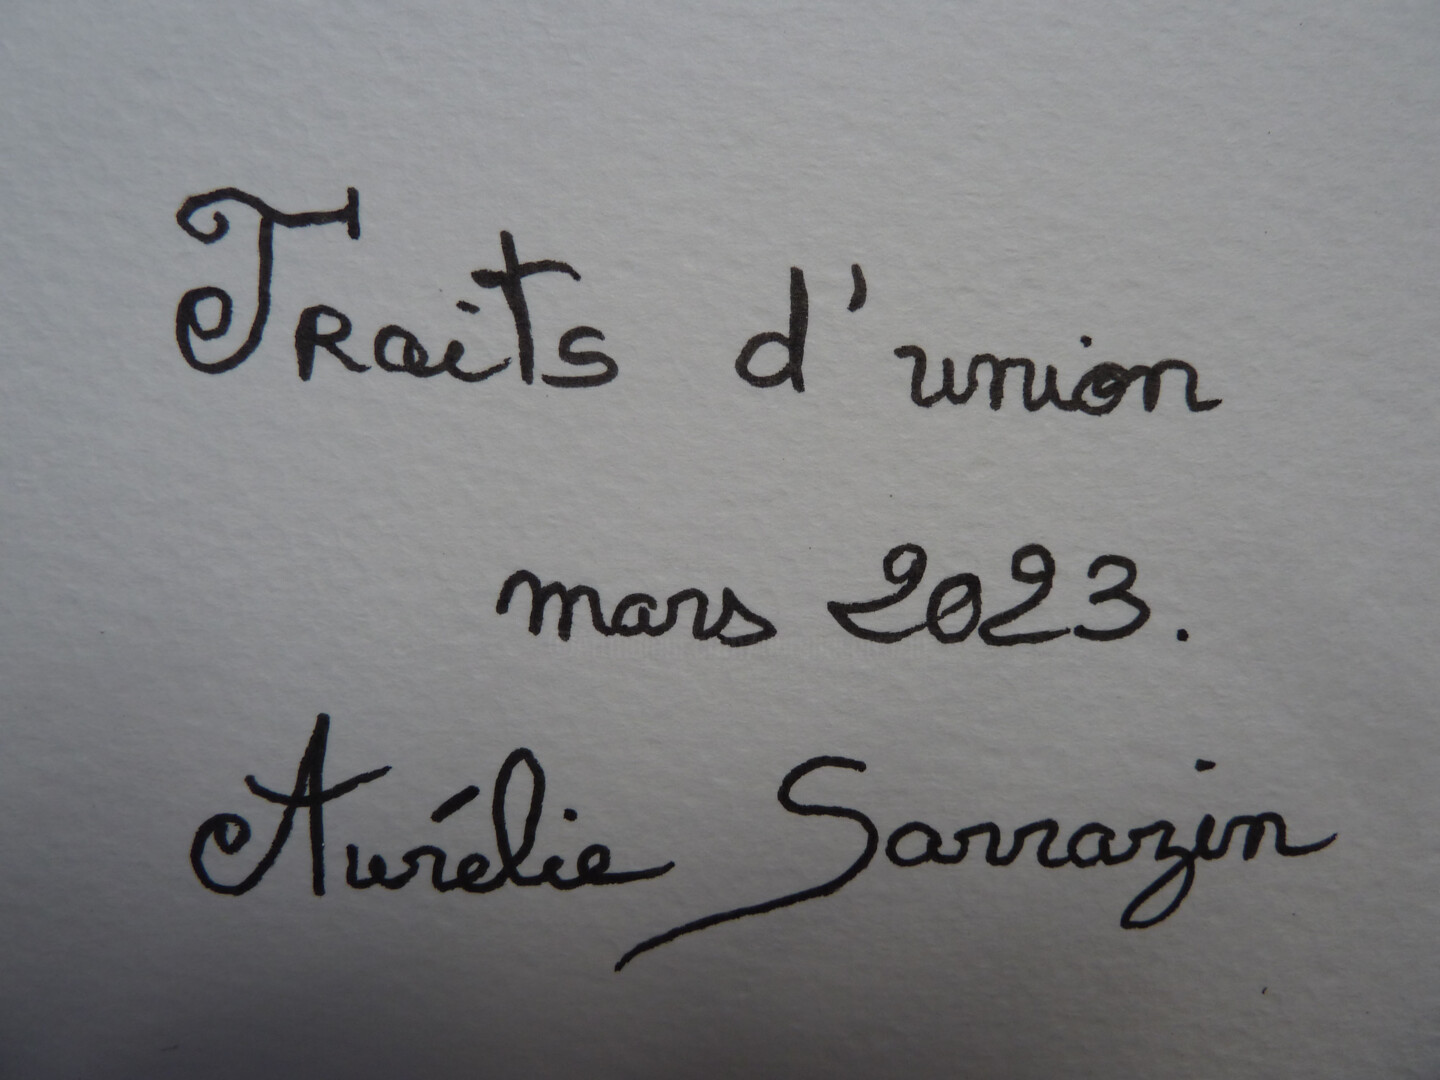 Traits d'union
mars 2023.
Aurélie Sarrazin